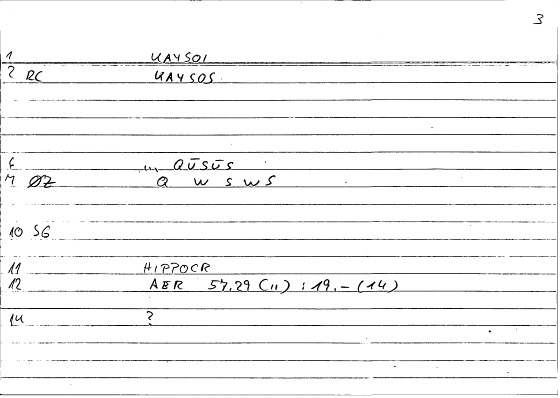 3
1 UAYSOI
2 RC UAYSOS
6 ... QŪSŪS
M ØZ Q W S W S
10 SG
11 HIPPOCR
12 AER 57.29 (11) : 19.- (14)
14 ?